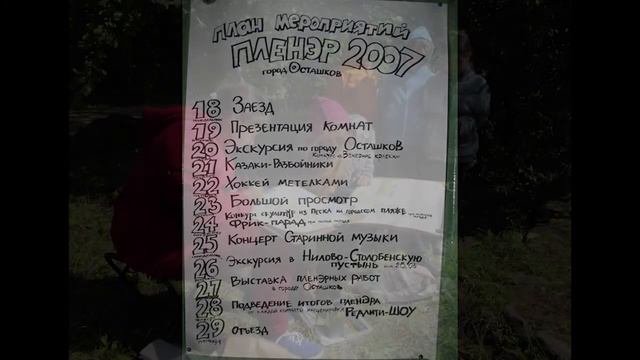 ПЛАН МЕРОПРИЯТИЙ
ПЛЕНЭР 2007
ГОРОД ОСТАШКОВ
18 ЗАЕЗД
19 ПРЕЗЕНТАЦИЯ КОМНАТ
20 ЭКСКУРСИЯ ПО ГОРОДУ ОСТАШКОВ
21 КАЗАКИ-РАЗБОЙНИКИ
22 ХОККЕЙ МЕТЕЛКАМИ
23 БОЛЬШОЙ ПРОСМОТР
КОНКУРС СКУЛЬПТУР ИЗ ПЕСКА НА ГОРОДСКОМ ПЛЯЖЕ
24 ФРИК-ПАРАД
25 КОНЦЕРТ СТАРИННОЙ МУЗЫКИ
26 ЭКСКУРСИЯ В НИЛОВО-СТОЛОБЕНСКУЮ
ПУСТЫНЬ
27 ВЫСТАВКА ПЛЕНЭРНЫХ РАБОТ
В ГОРОДЕ ОСТАШКОВ
28 ПОДВЕДЕНИЕ ИТОГОВ ПЛЕНЭРА
РЕАЛИТИ-ШОУ
29 ОТЪЕЗД